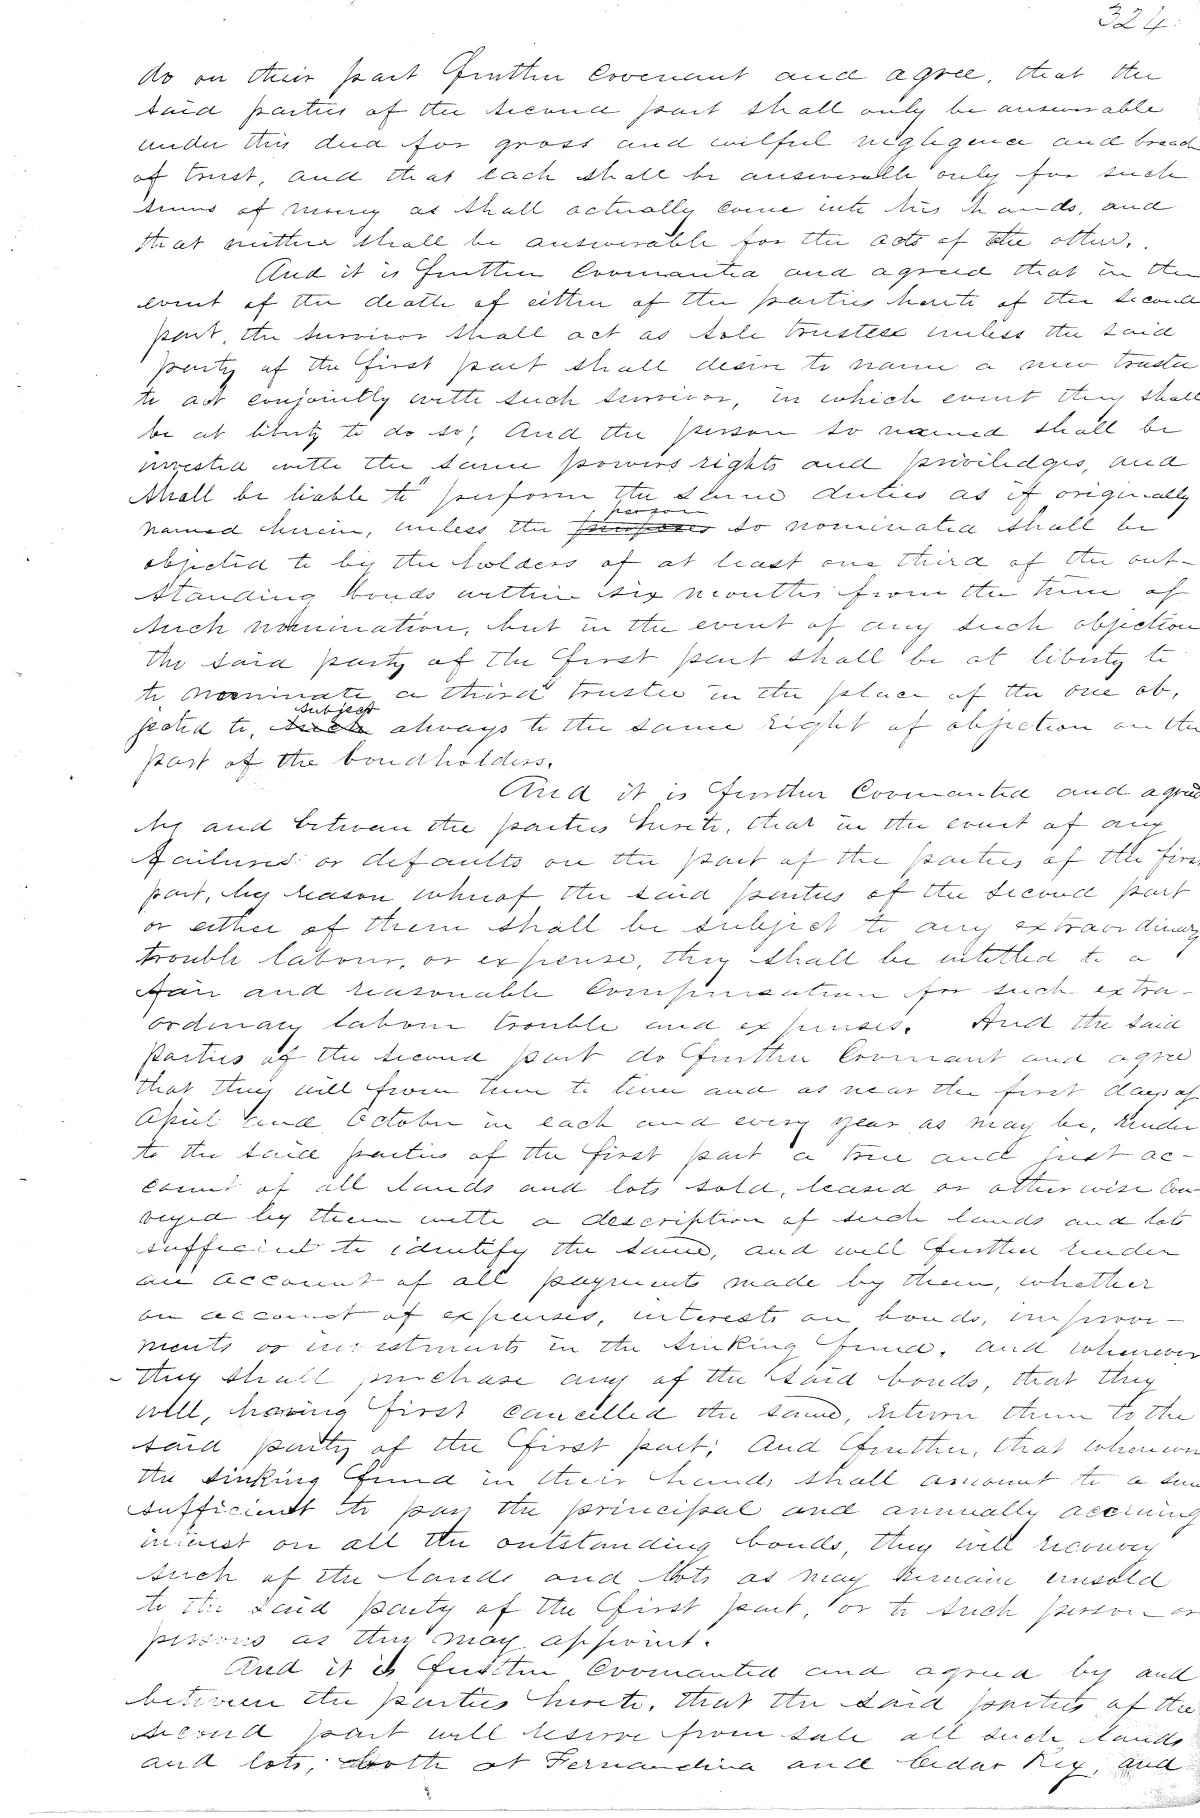 324.
do on their part further Covenant and agree, that the
said parties of the second part shall only be answerable
under this deed for gross and wilful neghgence and breach
of trust, and that each shall be answerable only for such
sums of money as shall actually come into his hands, and
that neither shall be answerable for the acts of the other.
And it is further Covenanted and agreed that in the
event of the death of either of the parties hereto of the second
part, the survivor shall act as sole trustee unless the said
party of the first part shall desire to name a new trustee
to act conjointly with such survivor, in which event they shall
be at liberty to do so; And the person so named shall be
invested with the same powers rights and priviledges, and
shall be liable to perform the same duties as if originally
person
named herein, unless the purposes so nominated shall be
objected to by the holders of at least one third of the out-
standing bonds within six months from the time of
such nomination, but in the event of any such objection
the said party of the first part shall be at liberty to
to nominate a third trustee in the place of the one ob,
subject
jected to, such always to the same right of objection on the
part of the bondholders.
And it is further Covenanted and agreed
by and between the parties hereto, that in the event of any
failures or defaults on the part of the parties of the first
part, by reason whereof the said parties of the second part
or either of them shall be subject to any extraordinary
trouble labour, or expense, they shall be intitled to a
fair and reasonable Compensation for such extra-
ordinary labour trouble and expenses. And the said
parties of the second part do further Covenant and agree
that they will from time to time and as near the first days of
April and October in each and every year as may be, render
to the said parties of the first part a true and just ac-
count of all lands and lots sold, leased or otherwise Con-
veyed by them with a description of such lands and lots
sufficient to identify the same, and will further render
an account of all payments made by them, whether
on account of expenses, interests on bonds, improve-
ments or investments in the sinking fund, and whenever
they shall purchase any of the said bonds, that they
will, having first cancelled the same, return them to the
said party of the first part; And further, that whenever
the sinking fund in their hands shall amount to a sum
sufficient to pay the principal and annually accruing
interest on all the outstanding bonds, they will reconvey
such of the lands and lots as may remain unsold
to the said party of the first part, or to such person or
persons as they may appoint.
And it is further Covenanted and agreed by and
between the parties hereto, that the said parties of the
second part will reserve from sale all such lands
and lots, both at Fernandina and Cedar Key, and